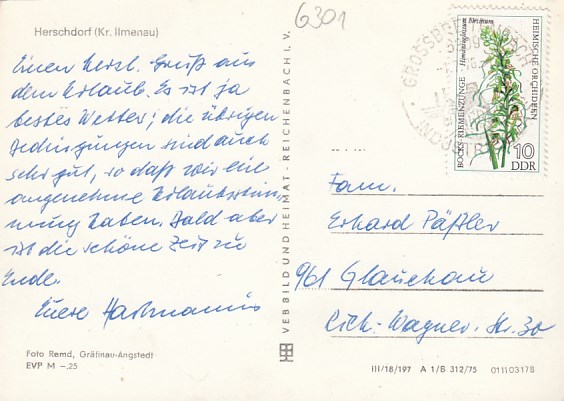 Herschdorf (Kr. Ilmenau)
6301
Einen herzl. Gruß aus
dem Urlaub. Es ist ja
bestes Wetter; die übrigen
Bedingungen sind auch
sehr gut, so daß wir eine
angenehme Urlaubsstim-
mung haben. Bald aber
ist die schöne Zeit zu
Ende.
Euere Hartmanns
Foto Remd, Gräfinau-Angstedt
EVP M –.25
VEB BILD UND HEIMAT · REICHENBACH I. V.
GROSSBREITENBACH
BOCKS-RIEMENZUNGE
Himantoglossum hircinum
HEIMISCHE ORCHIDEEN
10
DDR
Fam.
Erhard Päßler
961 Glauchau
Rich.-Wagner-Str. 30
III/18/197 A 1/B 312/75 01110317B